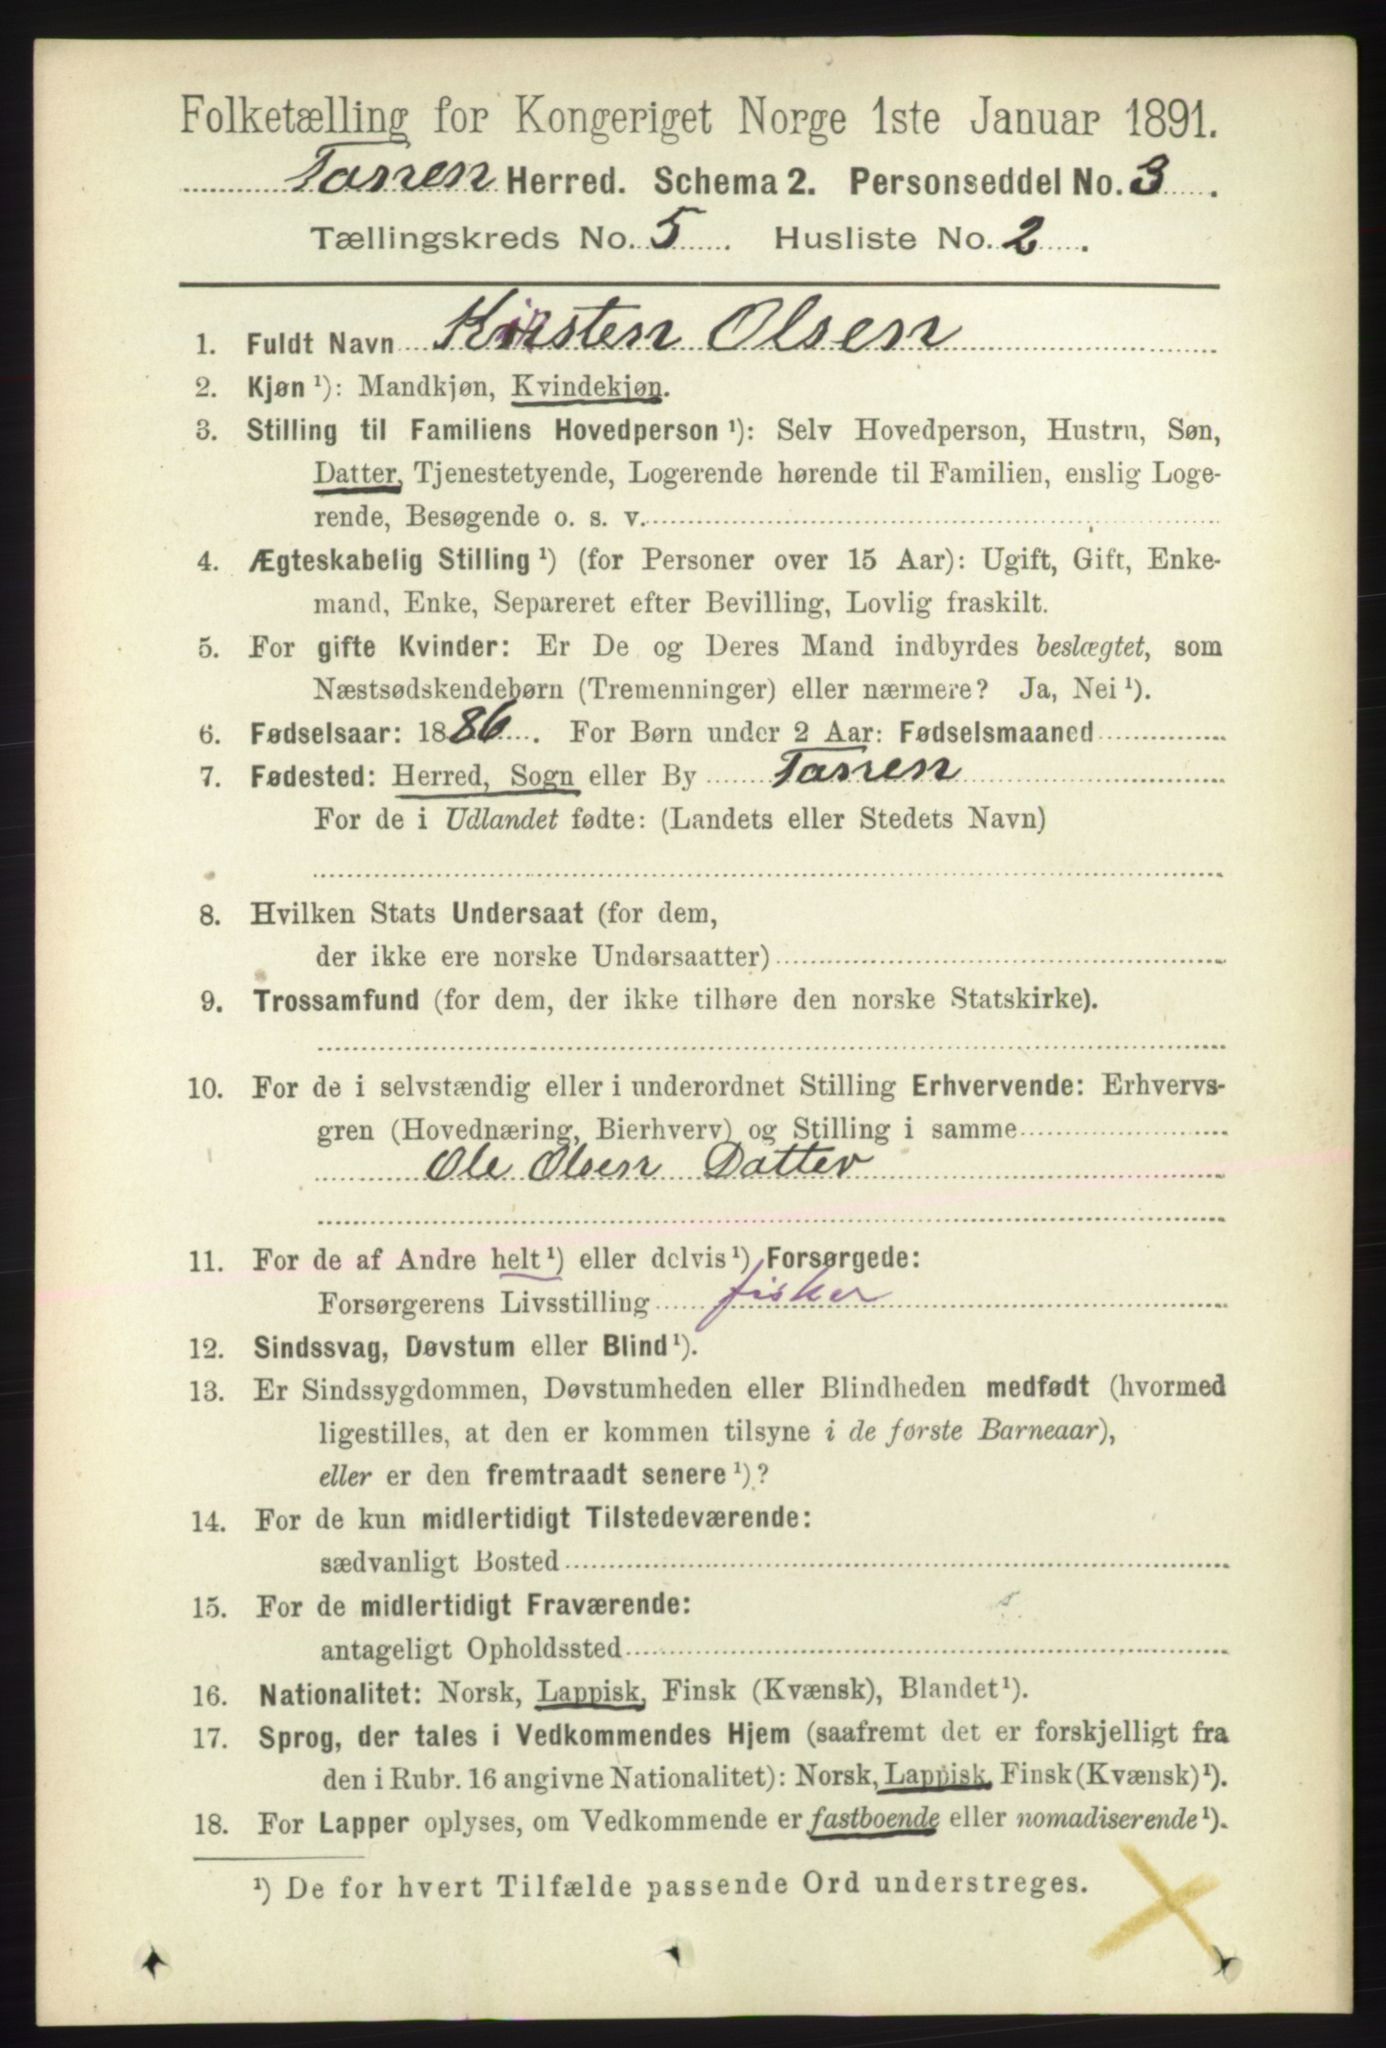 Folketælling for Kongeriget Norge 1ste Januar 1891.
Tanen Herred. Schema 2. Personseddel No. 3.
Tællingskreds No. 5. Husliste No. 2.
1. Fuldt Navn Kirsten Olsen
2. Kjøn ¹): Mandkjøn, Kvindekjøn.
3. Stilling til Familiens Hovedperson ¹): Selv Hovedperson, Hustru, Søn,
Datter, Tjenestetyende, Logerende hørende til Familien, enslig Loge-
rende, Besøgende o. s. v.
4. Ægteskabelig Stilling ¹) (for Personer over 15 Aar): Ugift, Gift, Enke-
mand, Enke, Separeret efter Bevilling, Lovlig fraskilt.
5. For gifte Kvinder: Er De og Deres Mand indbyrdes beslægtet, som
Næstsødskendebørn (Tremenninger) eller nærmere? Ja, Nei ¹).
6. Fødselsaar: 1886. For Børn under 2 Aar: Fødselsmaaned
7. Fødested: Herred, Sogn eller By Tanen
For de i Udlandet fødte: (Landets eller Stedets Navn)
8. Hvilken Stats Undersaat (for dem,
der ikke ere norske Undersaatter)
9. Trossamfund (for dem, der ikke tilhøre den norske Statskirke).
10. For de i selvstændig eller i underordnet Stilling Erhvervende: Erhvervs-
gren (Hovednæring, Bierhverv) og Stilling i samme
Ole Olsen Datter
11. For de af Andre helt ¹) eller delvis ¹) Forsørgede:
Forsørgerens Livsstilling fisker
12. Sindssvag, Døvstum eller Blind ¹).
13. Er Sindssygdommen, Døvstumheden eller Blindheden medfødt (hvormed
ligestilles, at den er kommen tilsyne i de første Barneaar),
eller er den fremtraadt senere ¹)?
14. For de kun midlertidigt Tilstedeværende:
sædvanligt Bosted
15. For de midlertidigt Fraværende:
antageligt Opholdssted
16. Nationalitet: Norsk, Lappisk, Finsk (Kvænsk), Blandet ¹).
17. Sprog, der tales i Vedkommendes Hjem (saafremt det er forskjelligt fra
den i Rubr. 16 angivne Nationalitet): Norsk, Lappisk, Finsk (Kvænsk) ¹).
18. For Lapper oplyses, om Vedkommende er fastboende eller nomadiserende ¹).
¹) De for hvert Tilfælde passende Ord understreges.